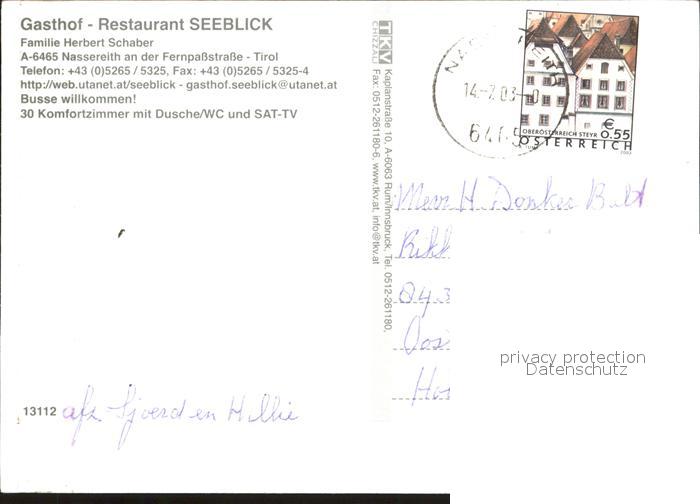 Gasthof - Restaurant SEEBLICK
Familie Herbert Schaber
A-6465 Nassereith an der Fernpaßstraße - Tirol
Telefon: +43 (0)5265 / 5325, Fax: +43 (0)5265 / 5325-4
http://web.utanet.at/seeblick - gasthof.seeblick@utanet.at
Busse willkommen!
30 Komfortzimmer mit Dusche/WC und SAT-TV
13112
afz Sjoerd en Hillie
TKV
CHIZZALI
Kaplanstraße 10, A-6063 Rum/Innsbruck, Tel. 0512-261180,
Fax 0512-261180-6, www.tkv.at, info@tkv.at
14.-7.03-0
€ 0.55
OBERÖSTERREICH STEYR
ÖSTERREICH
H. Donker
privacy protection
Datenschutz